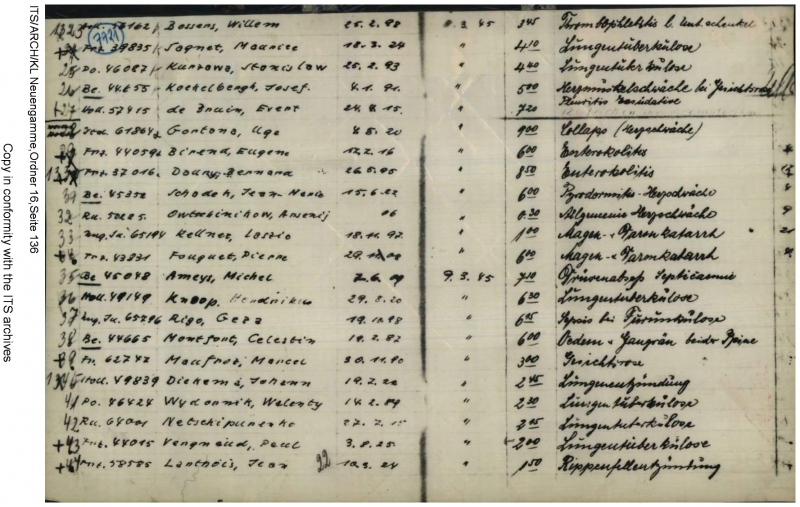 ITS/ARCH/KL Neuengamme,Ordner 16,Seite 136
Copy in conformity with the ITS archives
7721
Bossens, Willem 25.2.98 8.3.45 3 45 b. Unt.schenkel
Frz. 39835 Sagnet, Maurice 18.3.24 " 4 10 Lungentüberkülose
25 Po. 46087 Kurzawa, Stanislaw 25.2.93 " 4 40 Lungentüberkülose
26 Be. 44655 Kockelbergh, Josef. 4.1.91. " 5 00 Herzmüskelschwäche bei
+27 Holl. 57415 de Bruin, Evert 24.8.15. " 7 20 Pleuritis exsudative
Gontana, Ugo 4.5.20 " 9 00 Collaps (Herzschwäche)
Frz. 44059 Birend, Eugene 12.2.16 " 6 00 Enterokolitis
Frz. 37016 Doury, Bernard 26.5.05 " 8 50 Enterokolitis
Be. 45352 Schodeh, Jean-Marie 15.6.22 " 6 00 Pyrodermitis-Herzschwäche
32 Ru. Arsenij 06 " 0 30 Allgemeine Herzschwäche
33 Ung.Ju. 65194 Kellner, Laszlo 18.11.97 " 1 00 Magen-u Darmkatarrh
Frz. 43831 Fouquet, Pierre " 6 00 Magen-u Darmkatarrh
35 Be 45048 Ameys, Michel 9.3.45 7 10 Septicaemie
36 Holl. 49149 Knoop, Hendrikus 29.8.20 " 6 30 Lungentüberkülose
37 Ung.Ju. 65796 Rigo, Geza 19.10.98 " 6 45 Sepsis bei Fürünkülose
38 Be. 44665 Montfont, Celestin 19.2.82 " 6 00 Oedem u Gangrän beider Beine
+39 Fr. 62747 Maufroz, Marcel 30.11.90 " 3 00
1340 Holl. 49839 Diekema, Johann 19.2.22 " 2 45 Lüngenentzündung
41 Po. 46424 Wydonnik, Walenty 14.2.89 " 2 30 Lungentüberkülose
42 Ru. 64001 Netschipurenko " 2 45 Lungentüberkülose
+43 Frz. 44015 Vengmeaud, Paul 3.8.25. " 2 00 Lungentüberkülose
+44 Frz. 58585 Lanthois, Jean 92 10.3.24 " 1 50 Rippenfellentzündung